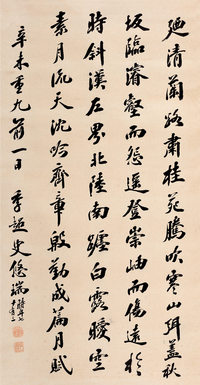 廼清蘭路肅桂苑騰吹寒山弭蓋秋
坂臨濬壑而怨遙登崇岫而傷遠於
時斜漢左界北陸南躔白露曖空
素月流天沈吟齊章殷勤成篇月賦
辛未重九前一日 季 史悠瑞